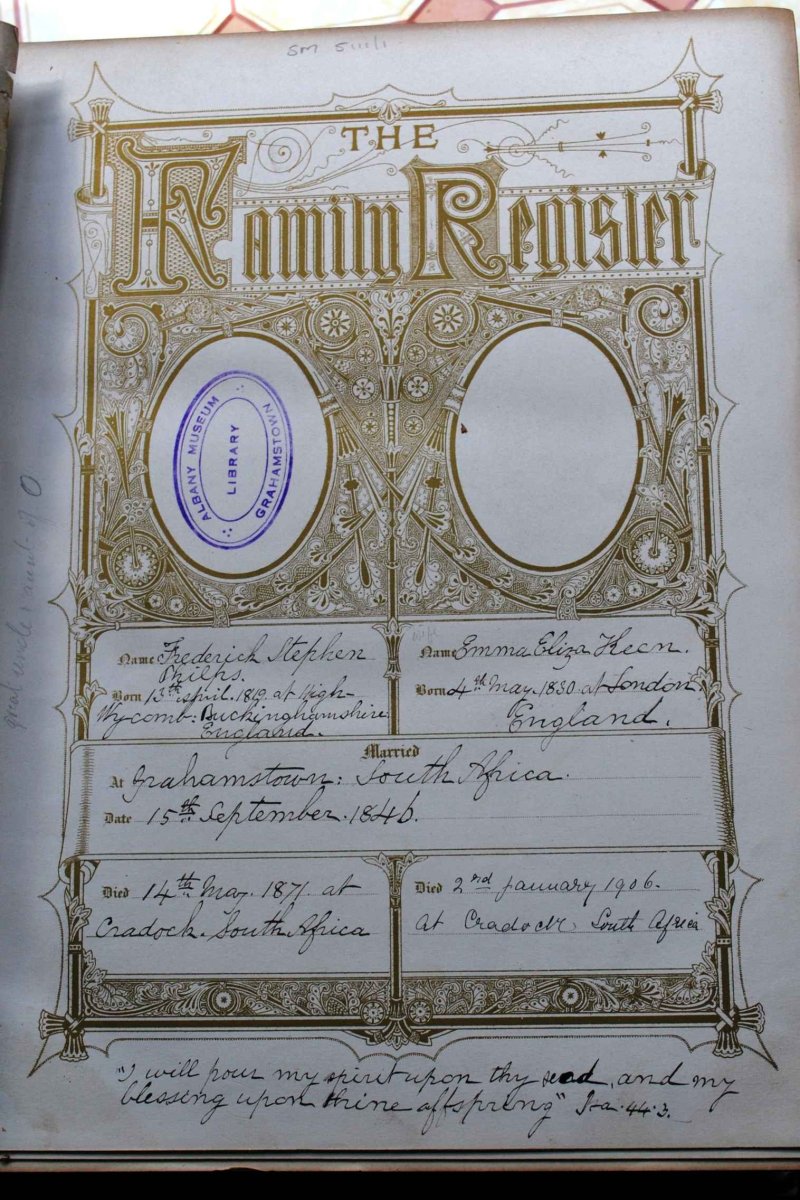 SM 5111/1
THE
Family Register
ALBANY MUSEUM
LIBRARY
GRAHAMSTOWN
great uncle & aunt of O
Name Frederick Stephen
Philps.
Born 13th April. 1819. at High-
Wycomb: Buckinghamshire
England.
wife
Name Emma Eliza Keen.
Born 4th May. 1830 at London
England.
Married
At Grahamstown: South Africa.
Date 15th September. 1846.
Died 14th May. 1871. at
Cradock. South Africa
Died 2nd January 1906.
at Cradock, South Africa
"I will pour my spirit upon thy seed, and my
blessing upon thine offspring" Isa. 44. 3.